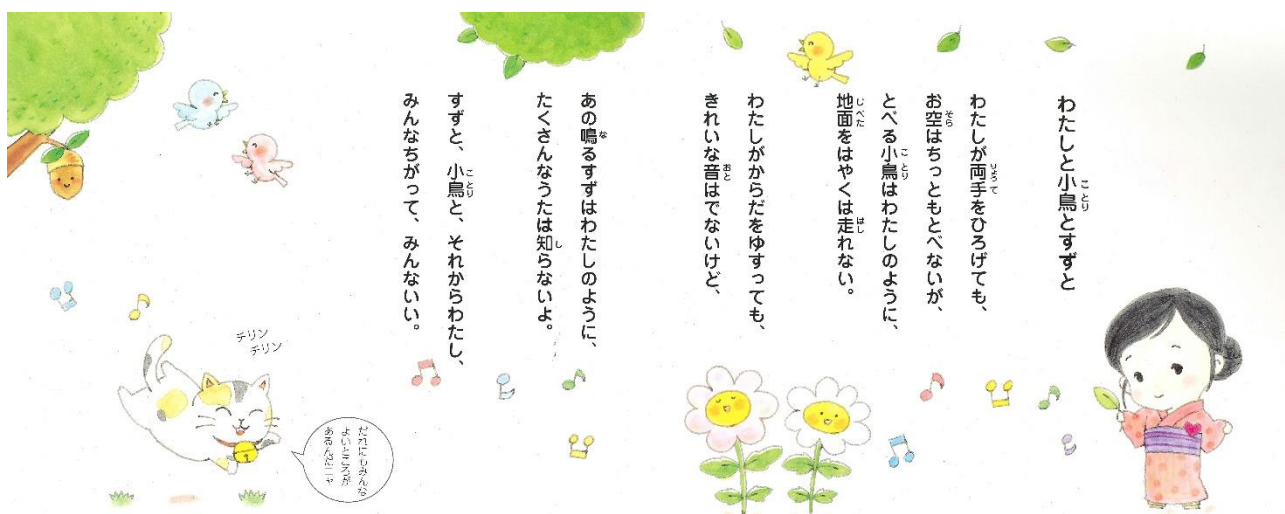 わたしと小鳥とすずと
わたしが両手をひろげても、
お空はちっともとべないが、
とべる小鳥はわたしのように、
地面をはやくは走れない。
わたしがからだをゆすっても、
きれいな音はでないけど、
あの鳴るすずはわたしのように、
たくさんなうたは知らないよ。
すずと、小鳥と、それからわたし、
みんなちがって、みんないい。
チリン
チリン
だれにもみんな
よいところが
あるんだニャ